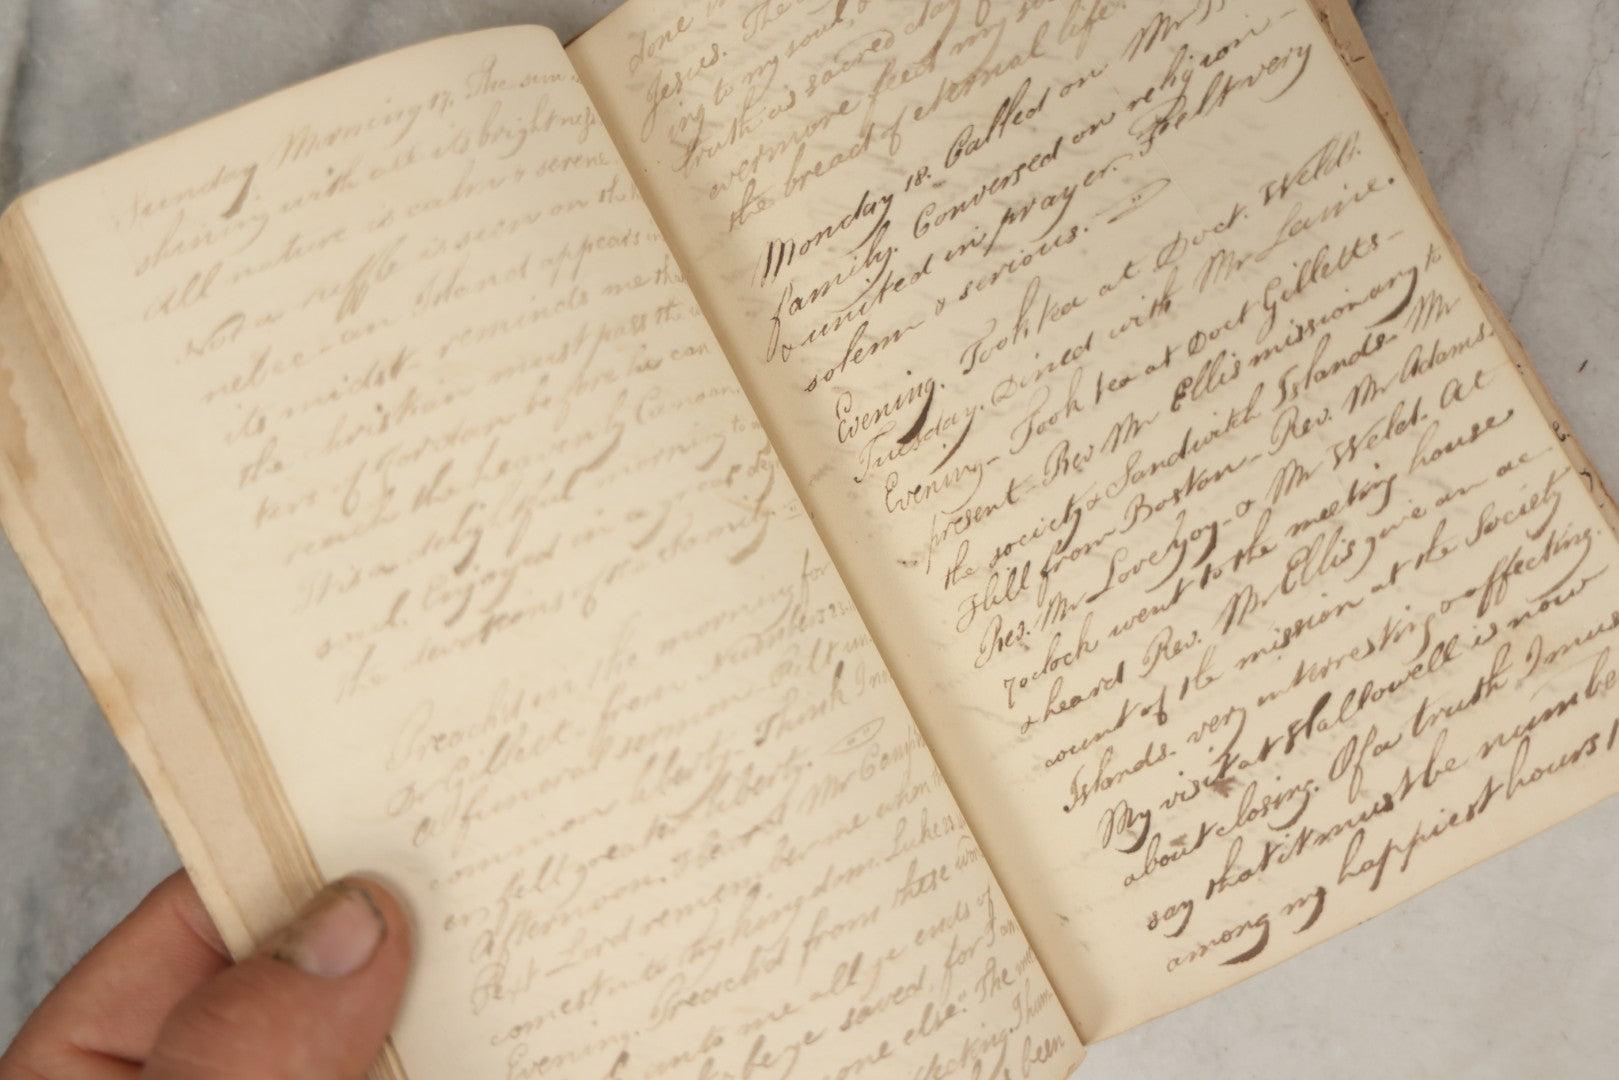 Sunday Morning 17. The sun is
shining with all its brightness
All nature is calm & serene
Not a ruffle is seen on the
nebec - an Island appears in
its midst - reminds me that
the christian must pass the
of Jordan before he can
reach the heavenly Canaan.
This a delightful morning to
soul. Enjoyed in a great deg
the devotions of the family.
Preached in the morning for
Dr Gillett - from Numbers 23.
A funeral sermon. Felt un
common liberty - Think I
en fell greater liberty.
Afternoon. Heard Mr
Text Lord remember me when
comest into thy kingdom. Luke 23
Evening. Preached from these wor
unto me all ye ends of
be ye saved, for I am
one else." The
been
done
Jesus. The
ing to my soul, &
truth is sacred day
evermore feed my so
the bread of eternal life.
Monday 18. Called on Mr
family. Conversed on religion -
& united in prayer. Felt very
solem & serious.
Evening. Took tea at Doct. Welds.
Tuesday. Dined with Mr Laine.
Evening - Took tea at Doct Gilletts -
present - Rev Mr Ellis missionary to
the society & Sandwich Islands - Mr
Hill from Boston - Rev. Mr Adams.
Rev. Mr Lovejoy - & Mr Weld. At
7 oclock went to the meeting house
& heard Rev. Mr Ellis give an ac
count of the mission at the Society
Islands. very interresting & affecting.
My visit at Hallowell is now
about closing. Of a truth I mus
say that it must be numbe
among my happiest hours